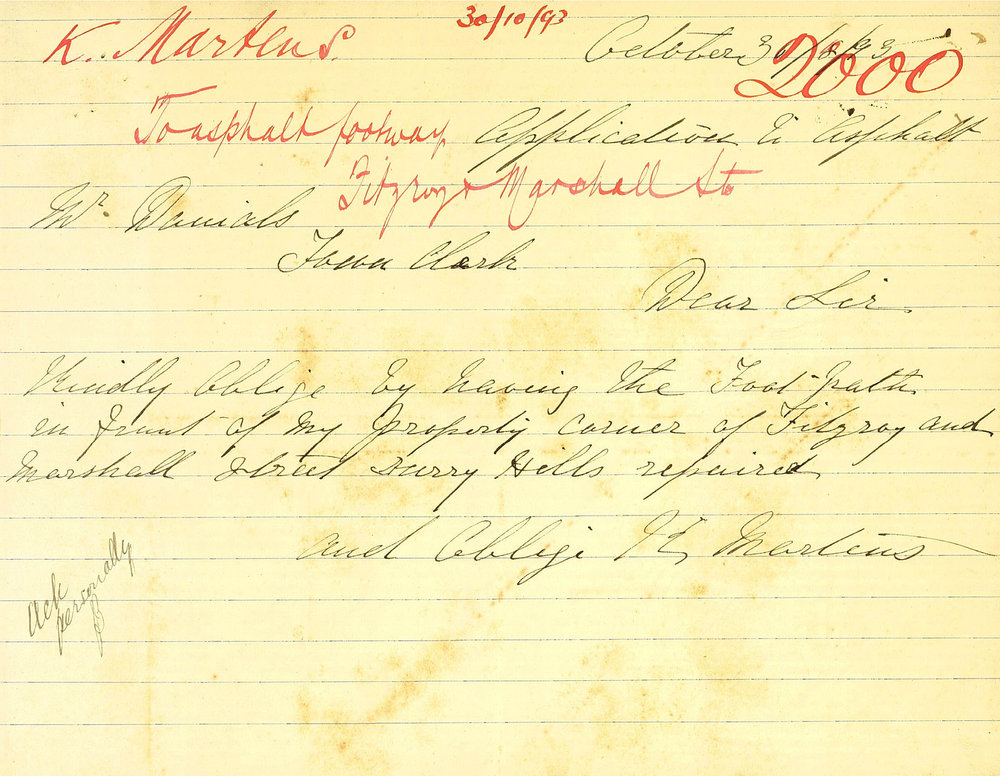 30/10/93
K. Martens.
October 30/1893
2000
To asphalt footway
Application to Asphalt
Fitzroy & Marshall St
Mr. Daniels
Town Clerk
Dear Sir
Kindly Oblige by having the Foot path
in front of my property corner of Fitzroy and
Marshall Street Surry Hills repaired
and Oblige K. Martens
Ack
personally